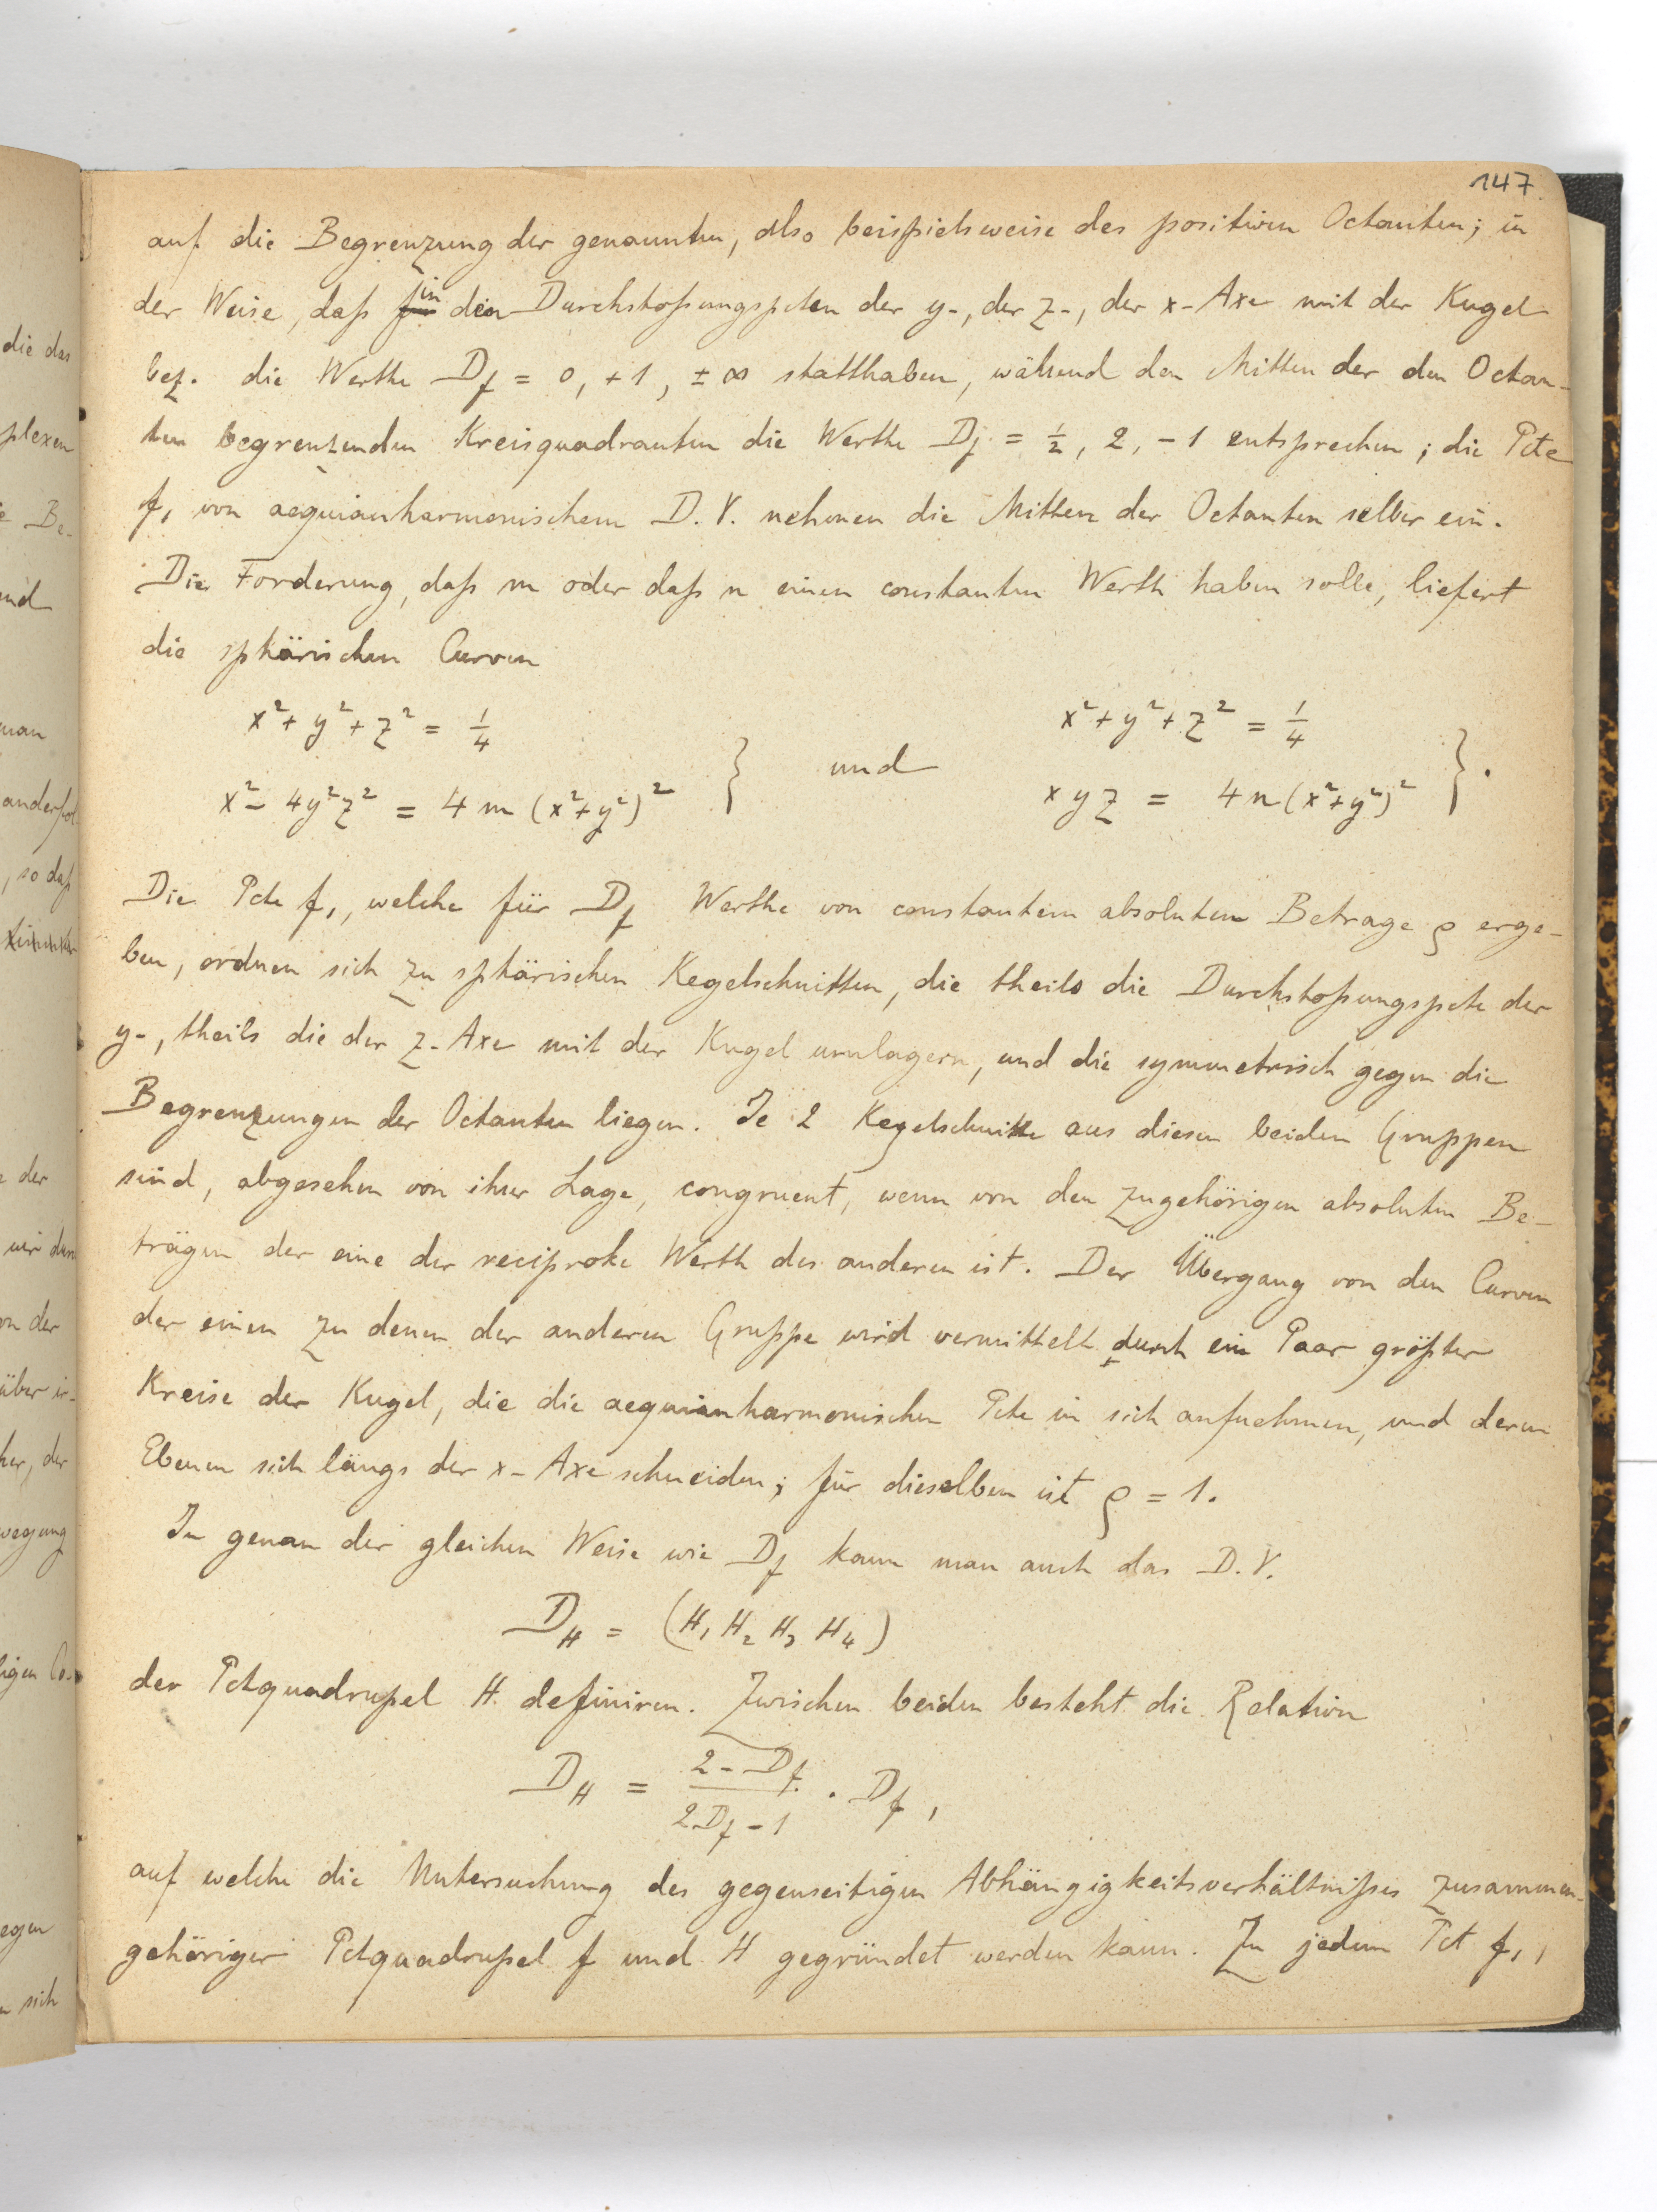 147
auf die Begrenzung der genannten, also beispielsweise des positiven Octanten; in
der Weise, daß in den Durchstoßungspcten der y-, der z-, der x-Axe mit der Kugel
bez. die Werthe D_f = 0, +1, ±∞ statthaben, während den Mitten der den Octan-
ten begrenzenden Kreisquadranten die Werthe D_f = 1/2, 2, -1 entsprechen; die Pcte
f₁ von aequianharmonischem D.V. nehmen die Mitten der Octanten selber ein.
Die Forderung, daß m oder daß n einen constanten Werth haben solle, liefert
die sphärischen Curven
x² + y² + z² = 1/4 x² + y² + z² = 1/4
x² - 4y²z² = 4m(x²+y²)² } und xyz = 4n(x²+y²)² }.
Die Pcte f₁, welche für D_f Werthe von constantem absolutem Betrage ρ erge-
ben, ordnen sich zu sphärischen Kegelschnitten, die theils die Durchstoßungspcte der
y-, theils die der z-Axe mit der Kugel umlagern, und die symmetrisch gegen die
Begrenzungen der Octanten liegen. Je 2 Kegelschnitte aus diesen beiden Gruppen
sind, abgesehen von ihrer Lage, congruent, wenn von den zugehörigen absoluten Be-
trägen der eine der reciproke Werth des anderen ist. Der Übergang von den Curven
der einen zu denen der anderen Gruppe wird vermittelt durch ein Paar größter
Kreise der Kugel, die die aequianharmonischen Pcte in sich aufnehmen, und deren
Ebenen sich längs der x-Axe schneiden; für dieselben ist ρ = 1.
In genau der gleichen Weise wie D_f kann man auch das D.V.
D_H = (H₁ H₂ H₃ H₄)
der Pctquadrupel H definiren. Zwischen beiden besteht die Relation
D_H = (2 - D_f)/(2D_f - 1) · D_f,
auf welche die Untersuchung des gegenseitigen Abhängigkeitsverhältnißes zusammen-
gehöriger Pctquadrupel f und H gegründet werden kann. Zu jedem Pct f₁,